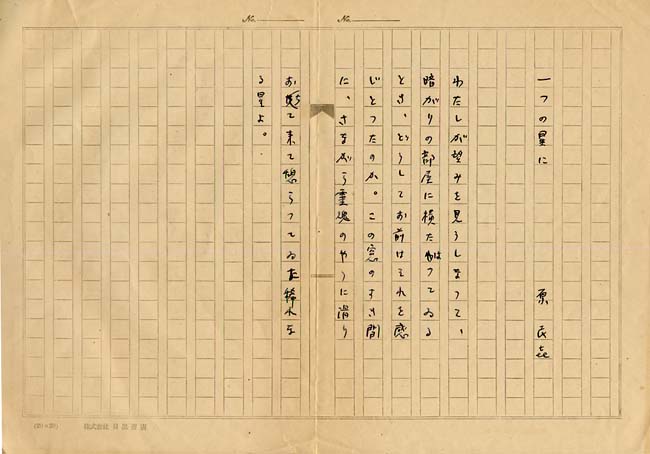 No.
No.
一つの星に　原民喜
わたしが望みを見うしなつて、
暗がりの部屋に横たはつてゐる
とき、どうしてお前はそれを感
じとつたのか。この窓のすき間
に、さながら靈魂のやうに滑り
おちて来て憩らつてゐた稀れな
る星よ。
株式会社